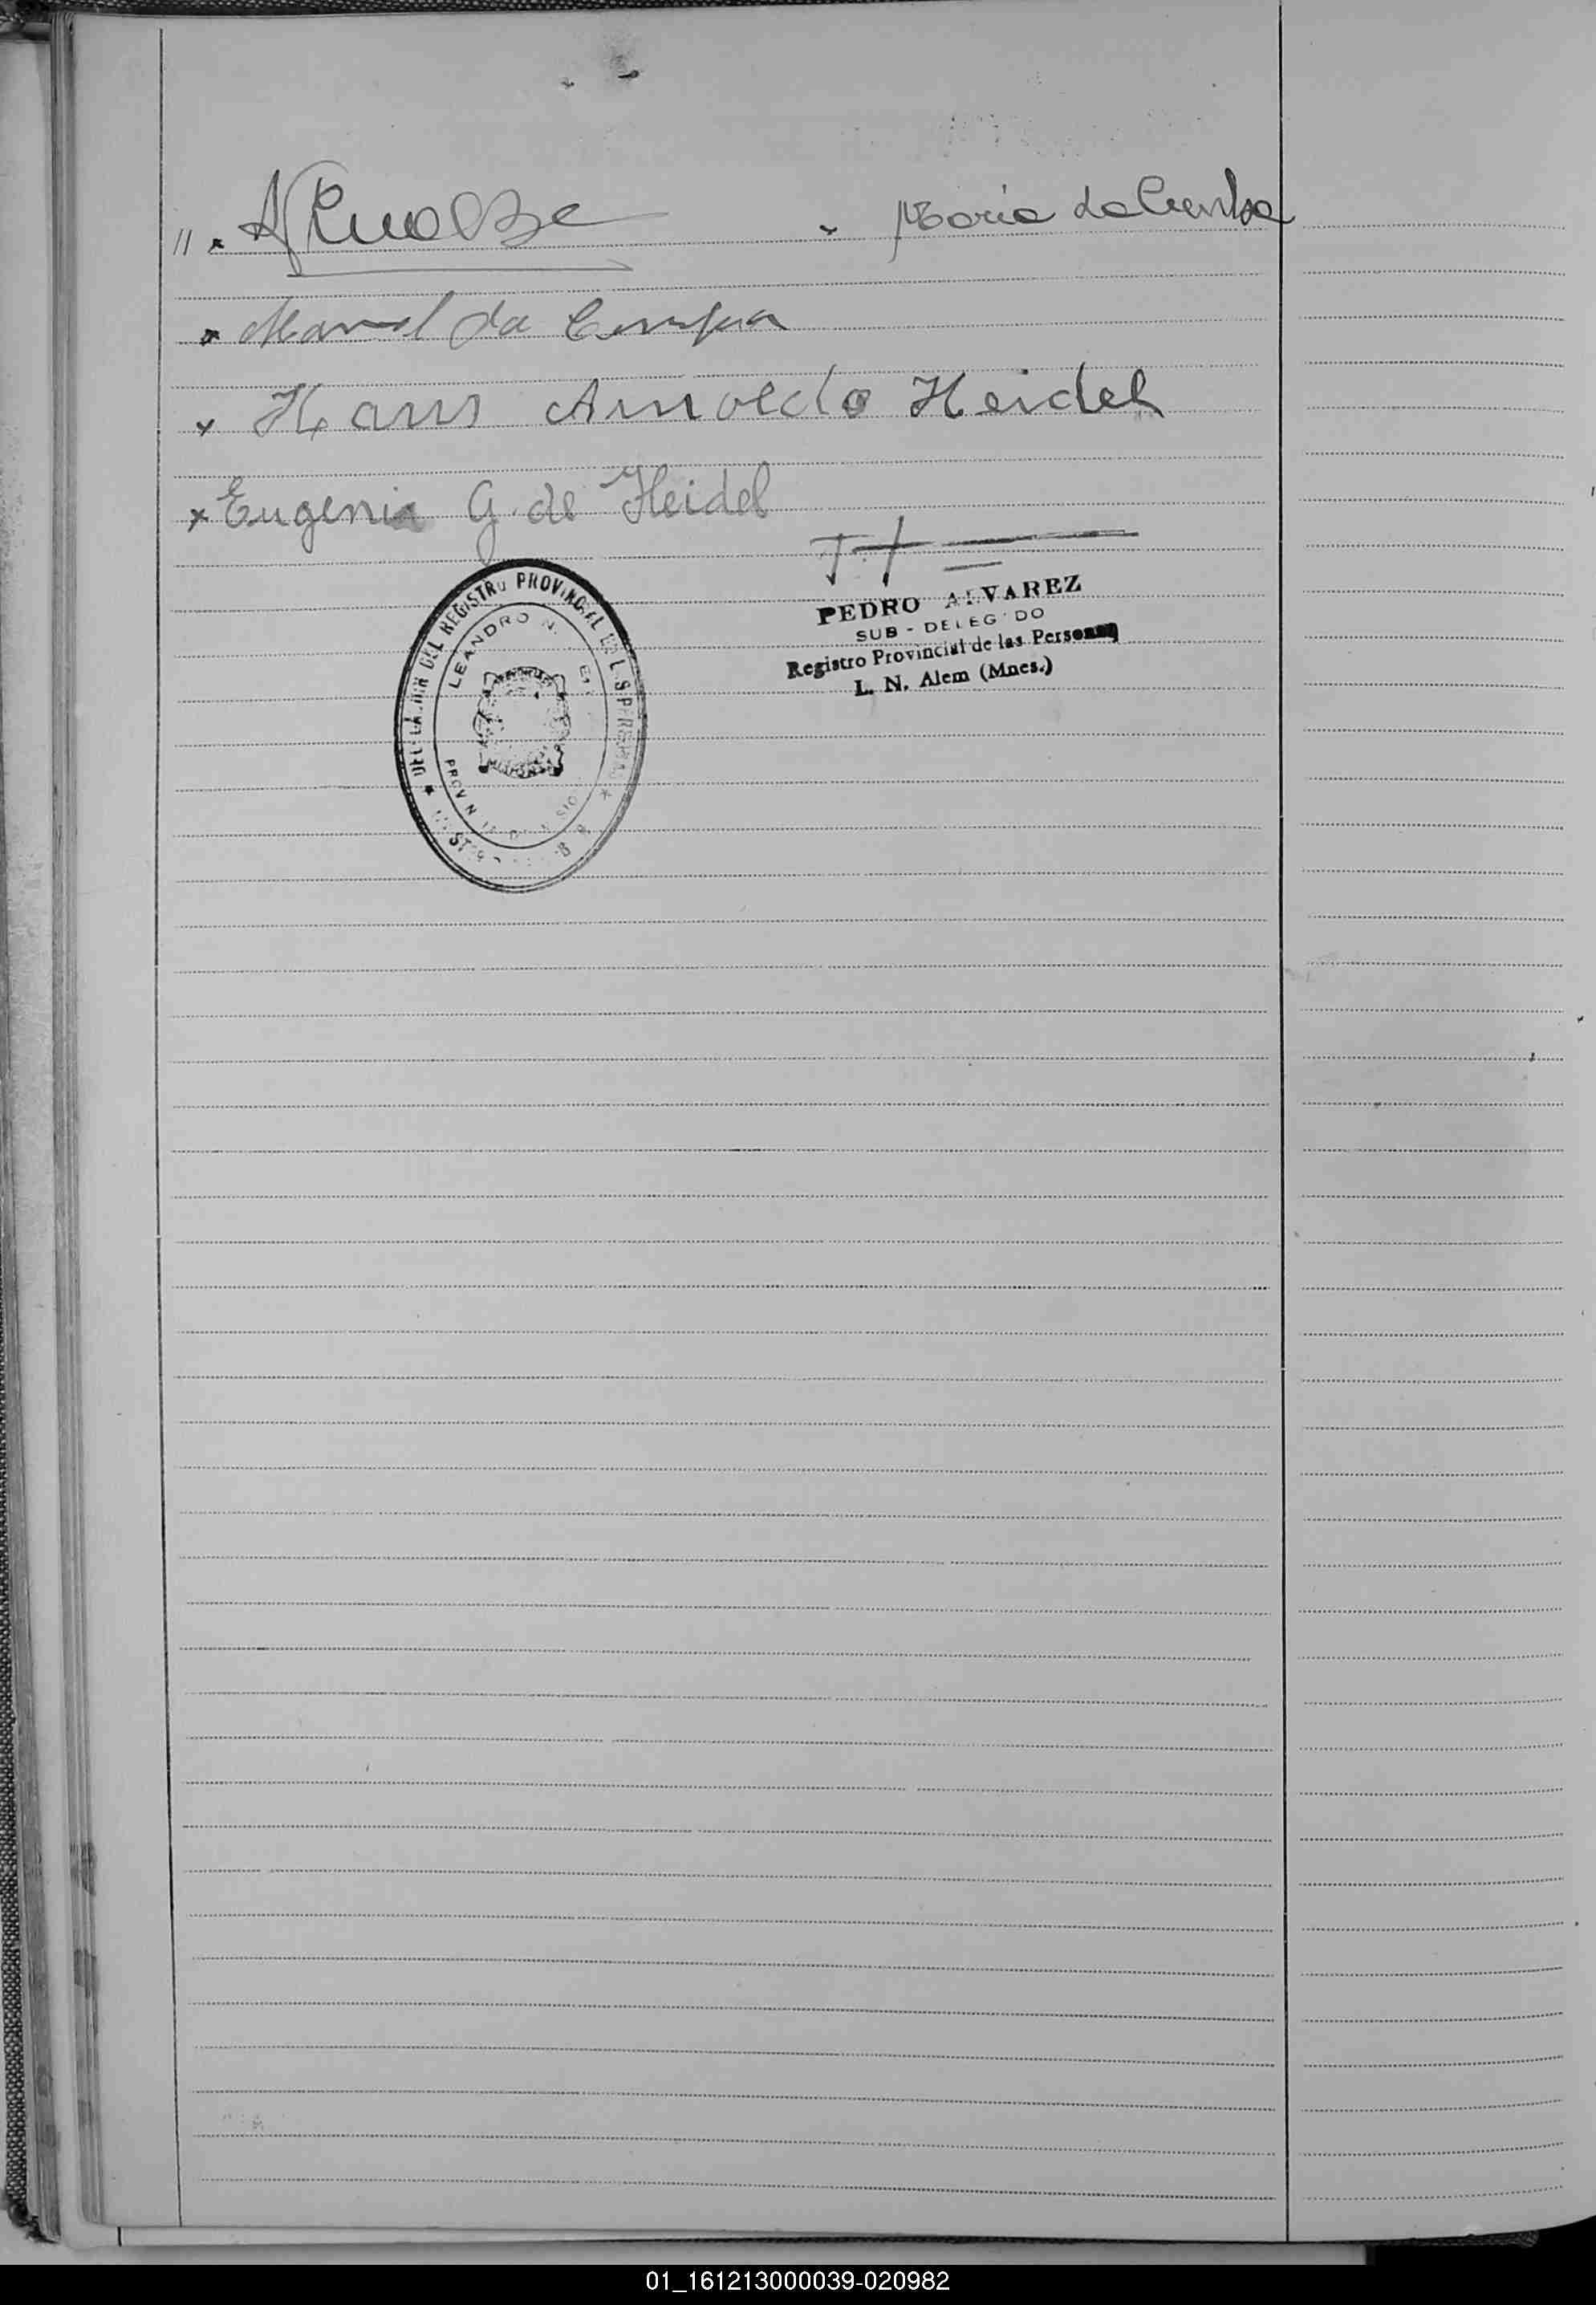 Maria da Cunha
Manoel da Cunha
Hans Arnoldo Heidel
Eugenia G. de Heidel
PEDRO ALVAREZ
SUB-DELEGADO
Registro Provincial de las Personas
L. N. Alem (Mnes.)
REGISTRO PROVINCIAL DE LAS PERSONAS
LEANDRO N.
01_161213000039-020982